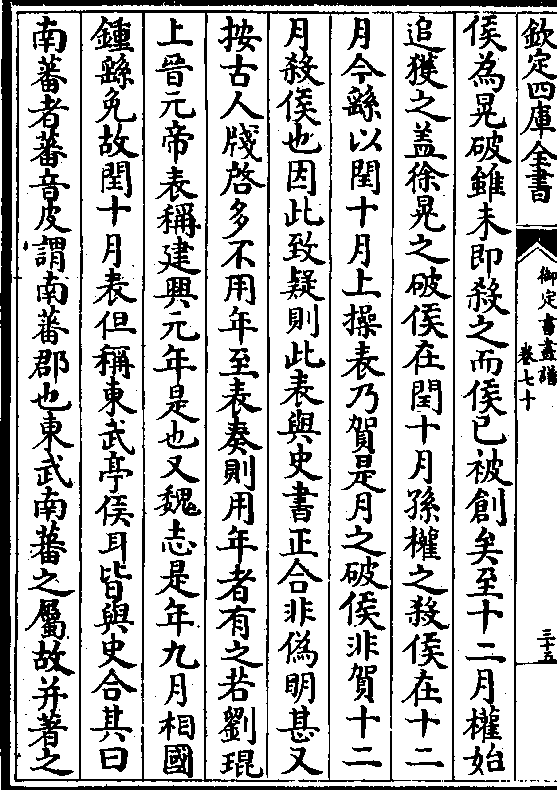 欽定四庫全書
御定書畫譜
卷七十
三十五
侯為晃破雖未即殺之而侯已被創矣至十二月權始
追獲之盖徐晃之破侯在閏十月孫權之殺侯在十二
月今繇以閏十月上操表乃賀是月之破侯非賀十二
月殺侯也因此致疑則此表與史書正合非偽明甚又
按古人牋啓多不用年至表奏則用年者有之若劉琨
上晉元帝表稱建興元年是也又魏志是年九月相國
鍾繇免故閏十月表但稱東武亭侯耳皆與史合其曰
南蕃者蕃音皮謂南蕃郡也東武南蕃之屬故并著之